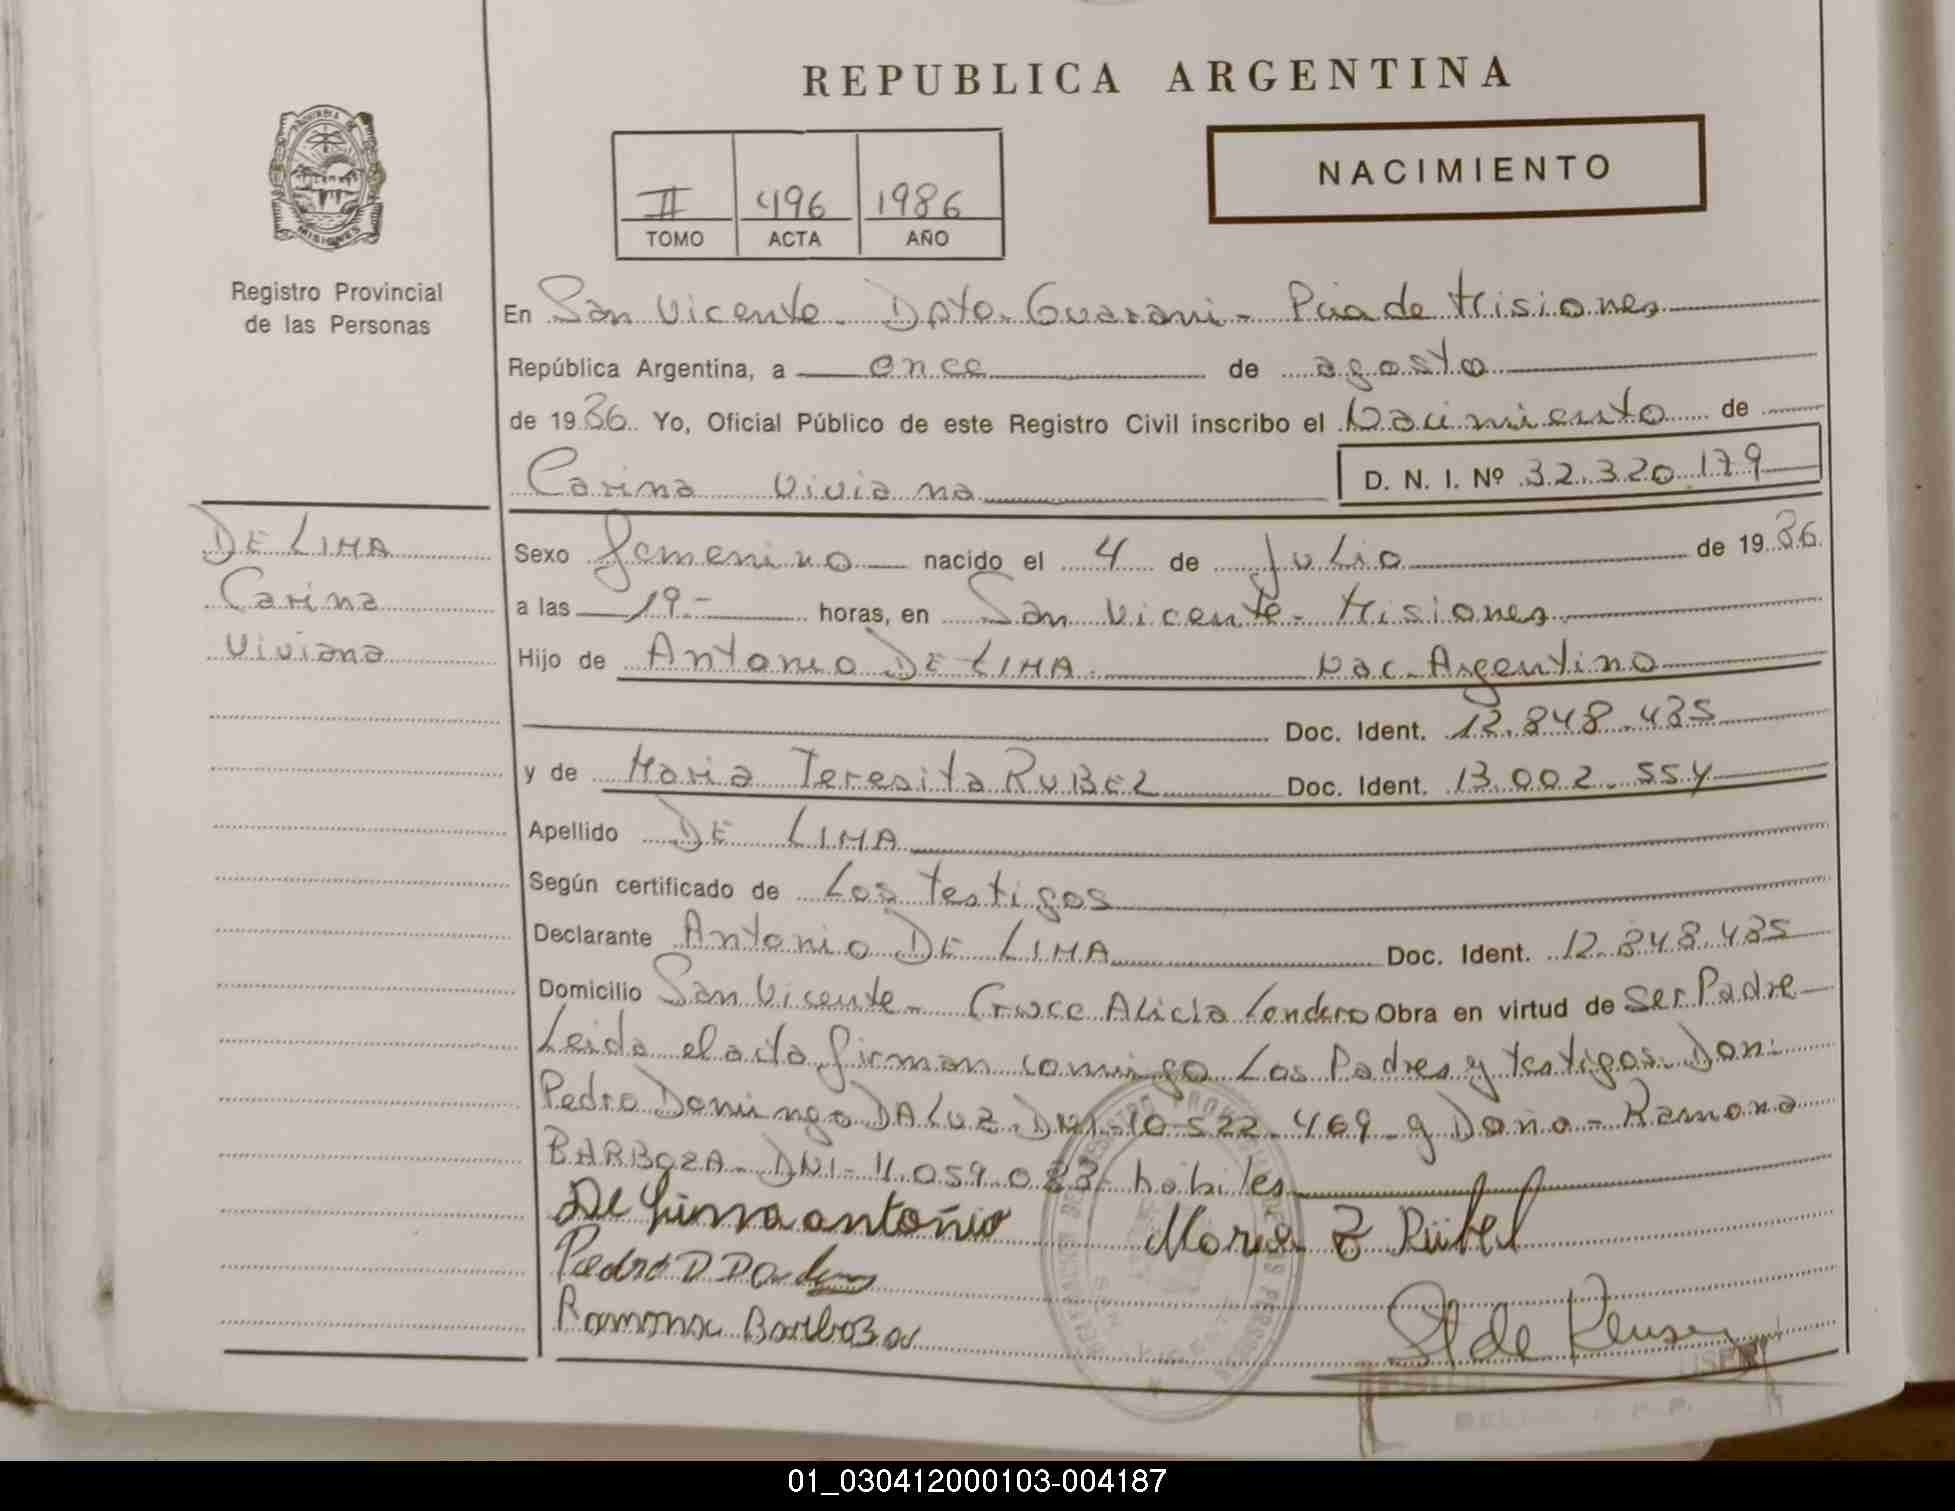 REPUBLICA ARGENTINA
NACIMIENTO
II 496 1986
TOMO ACTA AÑO
PROVINCIA DE
MISIONES
Registro Provincial
de las Personas
En San Vicente. Dpto. Guarani - Pcia de Misiones
República Argentina, a once de agosto
de 1986. Yo, Oficial Público de este Registro Civil inscribo el Nacimiento de
Carina Viviana D. N. I. Nº 32.320.179
DE LIMA
Carina
Viviana
Sexo femenino nacido el 4 de Julio de 1986.
a las 19.- horas, en San Vicente - Misiones
Hijo de Antonio DE LIMA. Nac. Argentino
Doc. Ident. 12.848.435
y de Maria Teresita RUBEL Doc. Ident. 13.002.554
Apellido DE LIMA
Según certificado de Los testigos
Declarante Antonio DE LIMA Doc. Ident. 12.848.435
Domicilio San Vicente - Cruce Alicia Londero Obra en virtud de ser Padre
Leida el acta firman conmigo Los Padres y testigos. Don:
Pedro Domingo DA LUZ. DNI-10.522.469 - y Doña - Ramona
BARBOZA - DNI - 11.059.083 - habiles
De Lima antonio Maria T Rübel
Pedro D Da Luz
Ramona Barboza
01_030412000103-004187